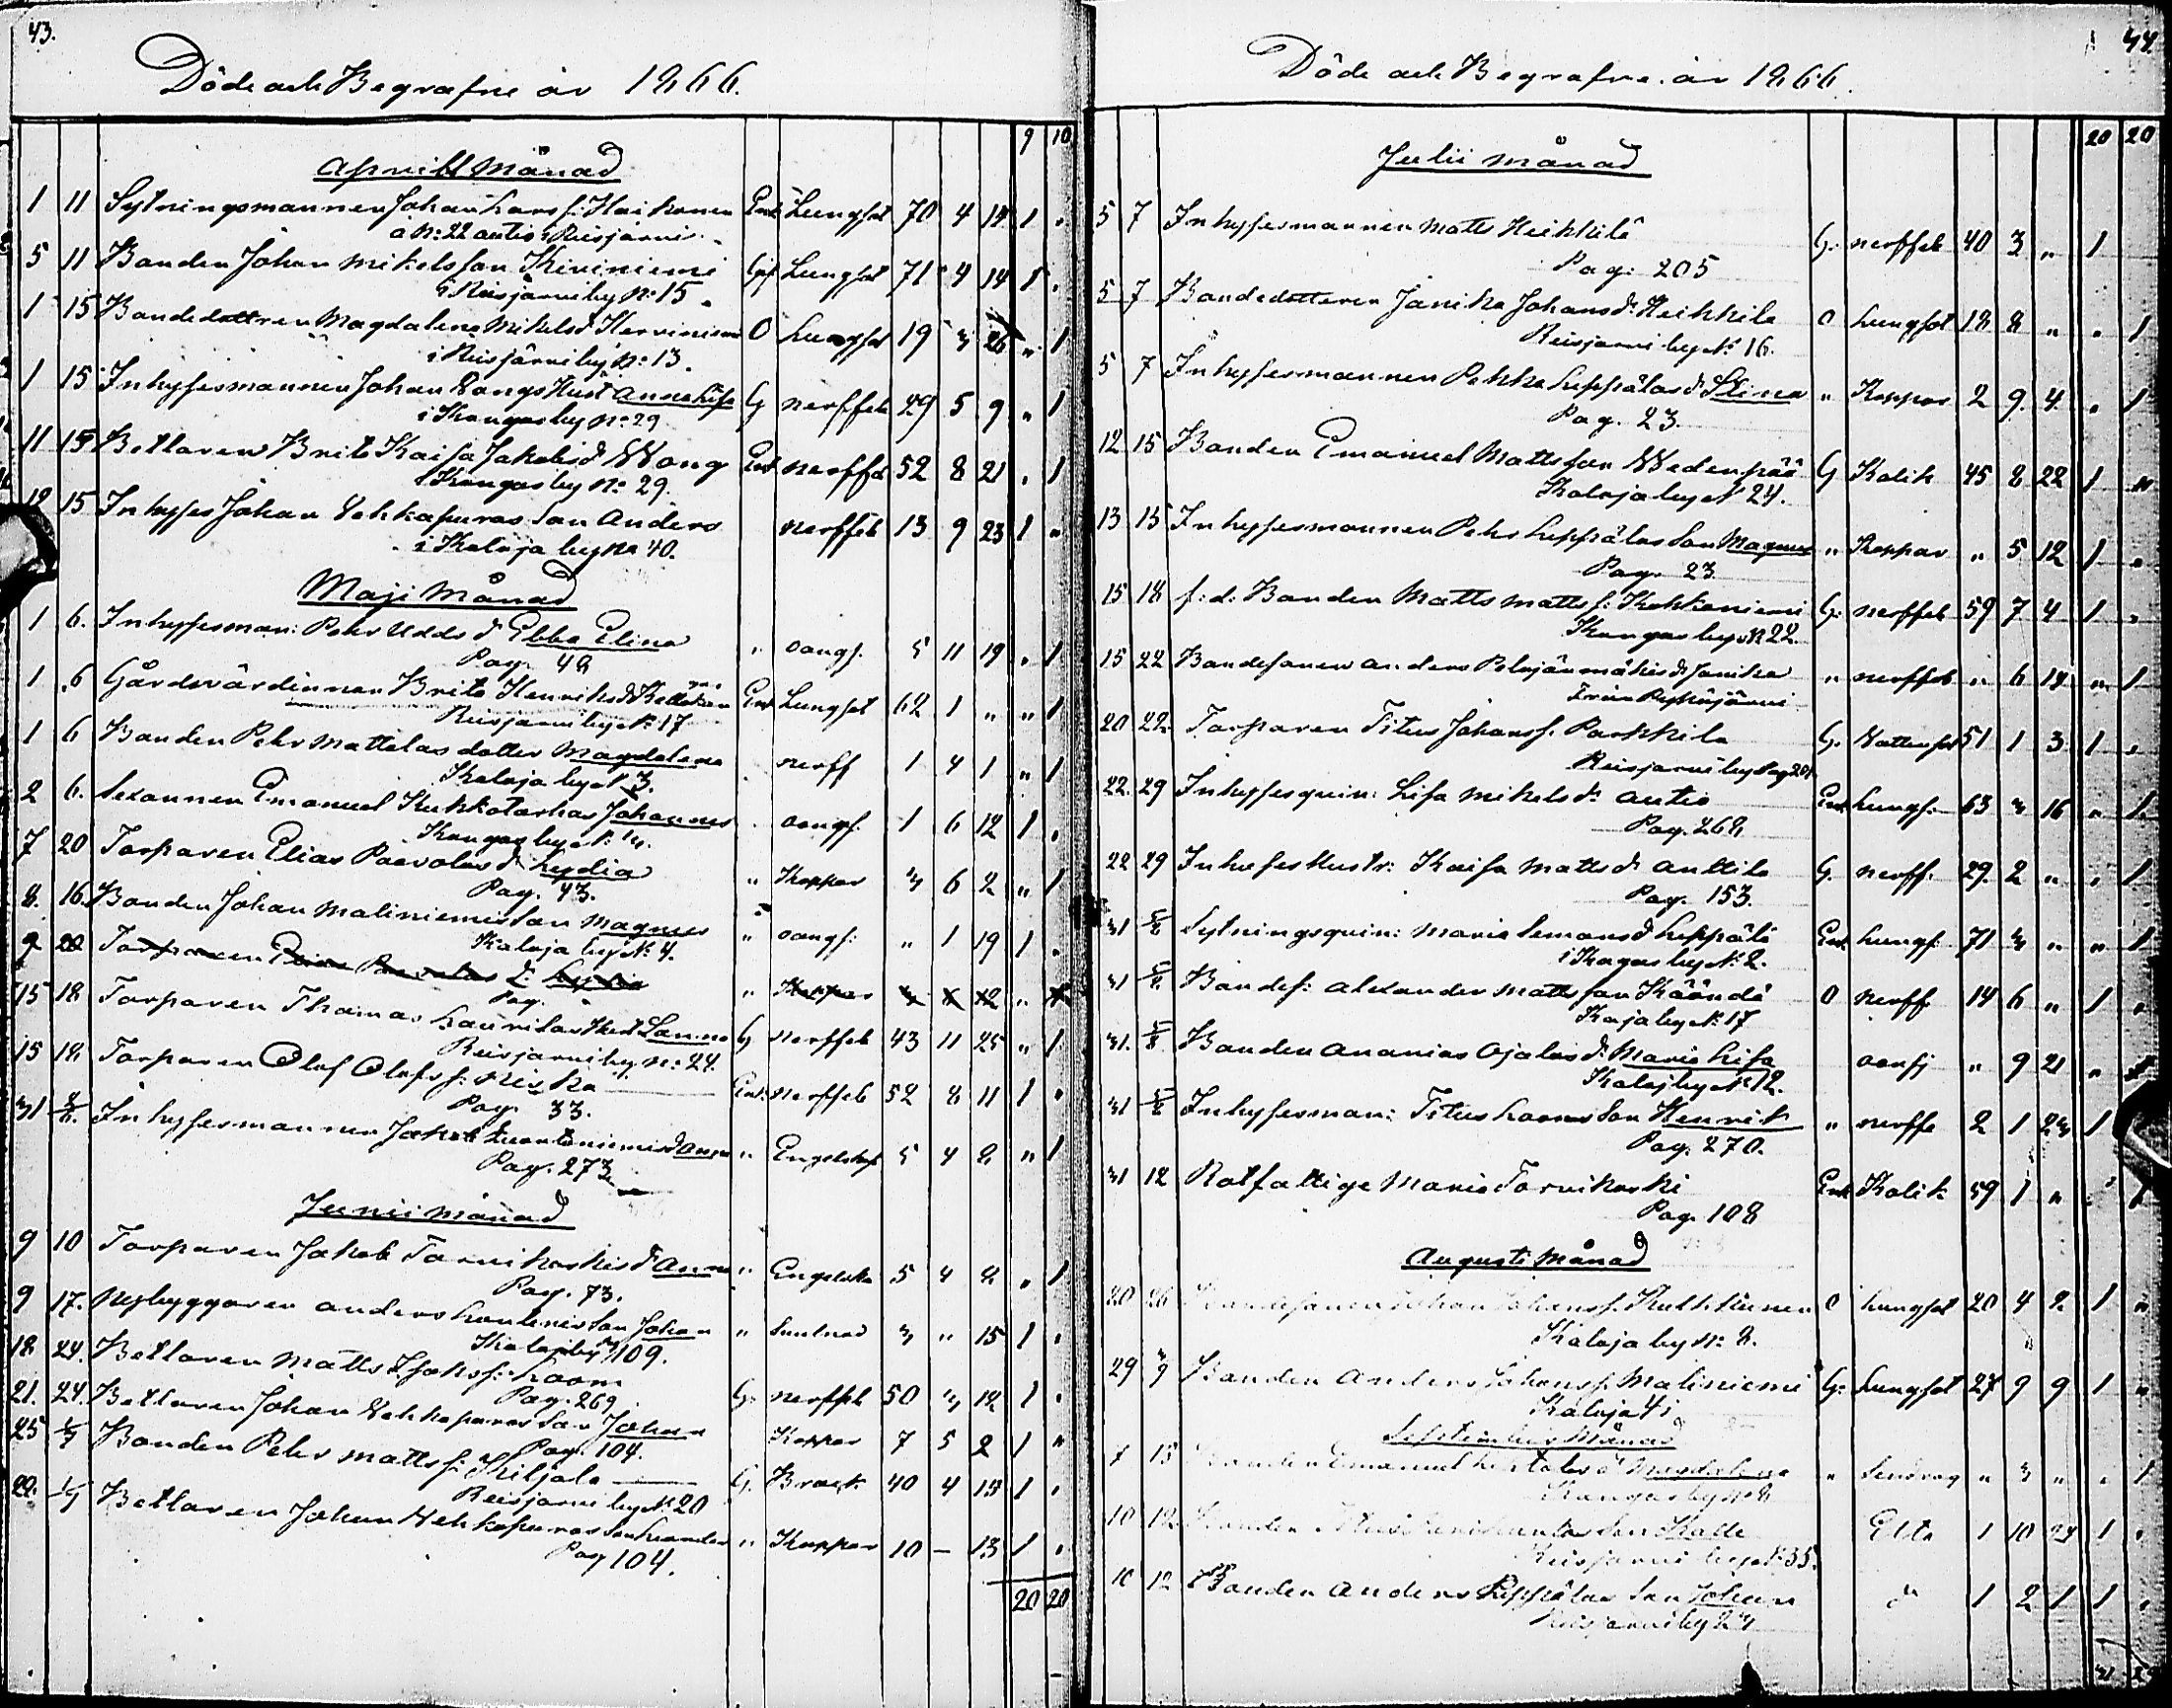 43.
Döde och Begrafne år 1866.
9 10
Aprill Månad
1 11 Sytningsmannen Johan Lars s: Haikonen Enk Lungsot 70 4 14 1 "
a No: 22 autio i Reisjärvi
5 11 Bonden Johan Mikelsson Kiviniemi Gift Lungsot 71 4 14 1 "
i Reisjärvi by No 15
1 15 Bondedottren Magdalena Mikelsd O Lungsot 19 3 26 " 1
i Reisjärvi by No: 13.
1 15 Inhysesmannen Johan Wangs Hust Anna Lisa G nerffeb 29 5 9 " 1
i Kangas by No 29
11 15 Bettaren Brita Kaisa Jakobsd Wang Enk nerffeb 52 8 21 " 1
i Kangas by No: 29.
12 15 Inhyses Johan Vehkapuras Son Anders nerffeb 13 9 23 1 "
i Kalaja by No 40.
Maji Månad
1 6. Inhysesman: Pehr Udds d Ebba Elina " oangf. 5 11 19 " 1
Pag. 48
1 6 Gårdsvärdinnan Brita Henriksd Enk Lungsot 62 1 " " 1
Reisjärvi by No: 17
1 6 Bonden Pehr Mattelas dotter Magdalena nerff 1 4 1 " 1
Kalaja by No 3.
2 6. Emanuel Kukkotarhas Johannes oangf. 1 6 12 1 "
Kangas by No
7 20 Torparen Elias Paavolas d: Lydia " Koppor 3 6 2 " 1
Pag. 43.
8. 16. Bonden Johan Maliniemis Son Magnus " oangf: " 1 19 1 "
Kalaja by No: 4.
9 20 Torparen Elias Paavolas d: Lydia " Koppor
Pag.
15 18 Torparen Thomas Laurilas Hust Sanna G nerffeb 43 11 25 " 1
Reisjärvi by No: 24.
15 18 Torparen Olof Olofs s: Niska Enk: nerffeb 52 8 11 1 "
Pag. 33.
31 Inhysesmannen Jakob d Anna " Engelska 5 4 2 " 1
Pag. 273
Junii Månad
9 10 Torparen Jakob Tarvikoskis d Anna " Engelska 5 4 2 " 1
Pag. 73.
9 17. Nybyggaren Anders Son Johan " 3 " 15 1 "
Kalaja by 109.
18 24. Bettaren Matts s: Laom G. nerffeb 50 3 12 1 "
Pag. 269
21. 24. Bettaren Johan Vehkapuras Son Johan Koppor 7 5 2 1 "
Pag. 104.
25 1/7 Bonden Pehr Matts s: Kiljala G. Bråck 40 4 13 1 "
Reisjärvi by No: 20
29. 1/7 Bettaren Johan Vehkapuras Son Leander " Koppor 10 — 13 1 "
Pag 104.
20 20
44.
Döde och Begrafne år 1866.
20 20
Julii Månad
5 7 Inhysesmannen Matts Heikkilä G. nerffeb 40 3 " 1
Pag: 205
5 7 Bondedotteren Janika Johansd: Heikkilä O Lungsot 18 8 " " 1
Reisjärvi by No 16.
5 7 Inhysesmannen Pekka Leppälas d: Stina " Koppor 2 9 4 " 1
Pag. 23.
12 15 Bonden Emanuel Mattsson Wedenpää G Kolik 45 8 22 1 "
Kalaja by No 24.
13 15 Inhysesmannen Pehr Leppälas Son Magnus " Koppor " 5 12 1 "
Pag. 23
15 18 f: d: Bonden Matts Matts s: Kokkoniemi G. nerffeb 59 7 4 1 "
Kangas by No 22
15 22 Bondesonen Anders d: Janika " nerffeb " 6 14 " 1
från Pyhäjärvi
20 22 Torparen Titus Johans s. Parkkila G. Vattensot 51 1 3 1 "
Reisjärvi by Pag 201
22. 29 Inhysesquin: Lisa Mikelsd: Autio Enk Lungs: 63 3 16 " 1
Pag. 268
22 29 Inhyses Hustr: Kaisa Mattsd: Anttila G. nerff. 29. 2 " " 1
Pag. 153.
31 5/8 Sytningsquin: Maria Simonsd Leppälä Enk Lungs: 71 3 " " 1
i Kangas by No: 2.
31 5/8 Bondes: Alexander Mattsson Kääntä O nerff. 14 6 " 1 "
Kalaja by No: 17
31. 5/8 Bonden Ananias Ojalas d: Maria Lisa oanfj " 9 21 " 1
Kalaja by No 12.
31 5/8 Inhysesman: Titus Laoms Son Henrik " nerffe 2 1 23 1
Pag. 270.
31 12 Rotfattige Maria Tarvikoski Enk Kolik 59 1 " " 1
Pag. 108
Augusti Månad
20 26 Bondesonen Johan Johans s. O Lungsot 20 4 2 1 "
Kalaja by No: 8.
29 Bonden Anders Johans s. Maliniemi G. Lungsot 27 9 9 1 "
Kalaja 4
Septembris Månad
7 15 Bonden Emanuel d Magdalena " " 3 " " 1
Kangas by No 8
10 12 Bonden Son Kalle 1 10 24 1 "
Reisjärvi by No: 35.
10 12 Bonden Anders Leppälas Son Johan d:o 1 2 1 1 "
Reisjärvi by 23